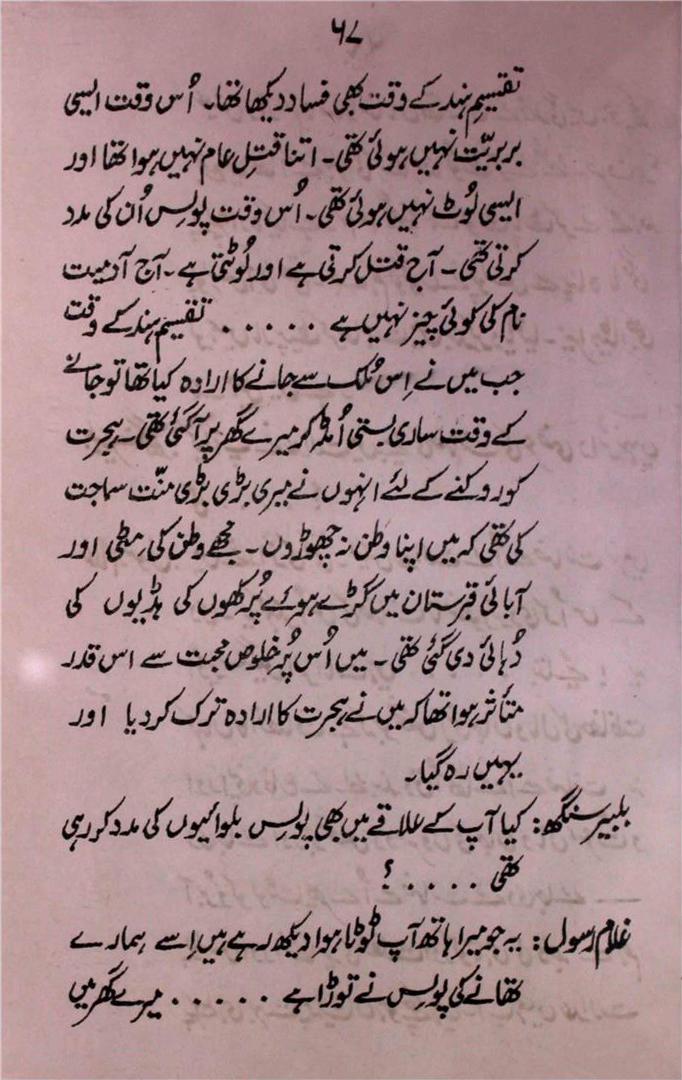 ۶۷
تقسیمِ ہند کے وقت بھی فساد دیکھا تھا۔ اُس وقت ایسی
بربریّت نہیں ہوئی تھی۔ اتنا قتلِ عام نہیں ہوا تھا اور
ایسی لُوٹ نہیں ہوئی تھی۔ اُس وقت پولس اُن کی مدد
کرتی تھی۔ آج قتل کرتی ہے اور لُوٹتی ہے۔ آج آدمیت
نام کی کوئی چیز نہیں ہے ..... تقسیمِ ہند کے وقت
جب میں نے اِس مُلک سے جانے کا ارادہ کیا تھا تو جانے
کے وقت ساری بستی اُمڈ کر میرے گھر پر آ گئی تھی۔ ہجرت
کو روکنے کے لئے انہوں نے میری بڑی بڑی منّت سماجت
کی تھی کہ میں اپنا وطن نہ چھوڑوں۔ مجھے وطن کی مِٹی اور
آبائی قبرستان میں گڑے ہوئے پُرکھوں کی ہڈیوں کی
دُہائی دی گئی تھی۔ میں اُس پُر خلوص محبت سے اس قدر
متأثر ہوا تھا کہ میں نے ہجرت کا ارادہ ترک کر دیا اور
یہیں رہ گیا۔
بلبیر سنگھ: کیا آپ کے علاقے میں بھی پولس بلوائیوں کی مدد کر رہی
تھی ....؟
غلام رسول: یہ جو میرا ہاتھ آپ ٹوٹا ہوا دیکھ رہے ہیں اِسے ہمارے
تھانے کی پولس نے توڑا ہے ..... میرے گھر میں